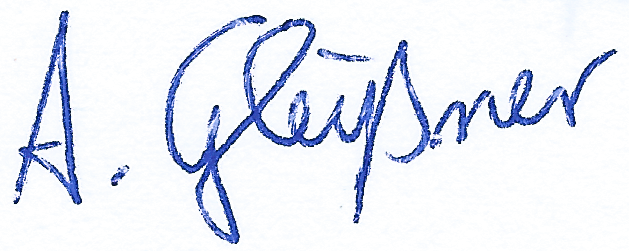 A. Gleißner